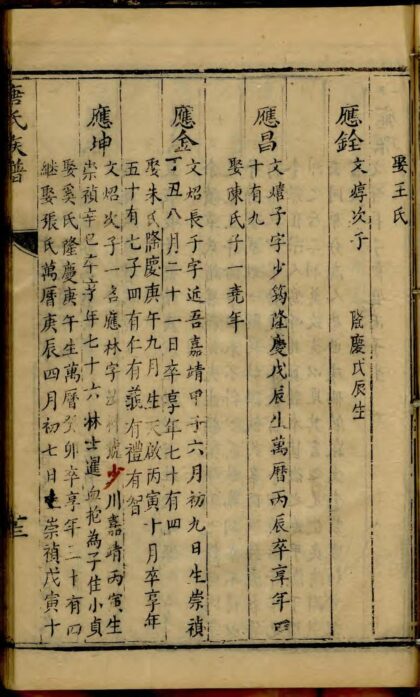 娶王氏
應銓
文焞次子 隆慶戊辰生
應昌
文熺子字少筠隆慶戊辰生萬曆丙辰卒享年四
十有九
娶陳氏子一堯年
應金
文炤長子字近吾嘉靖甲子六月初九日生崇禎
丁丑八月二十一日卒享年七十有四
娶朱氏隆慶庚午九月生天啟丙寅十月卒享年
五十有七子四有仁有義有禮有智
應坤
文炤次子一名應林字 號少川嘉靖丙寅生
崇禎辛巳卒享年七十六 林士暹血抱為子住小貞
娶奚氏隆慶庚午生萬曆癸卯卒享年三十有四
繼娶張氏萬曆庚辰四月初七日生崇禎戊寅十
唐氏族譜